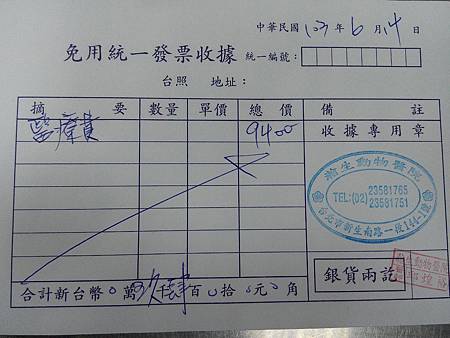 中華民國 103 年 6 月 14 日
免用統一發票收據 統一編號：
台照 地址：
摘要 數量 單價 總價 備註
醫療費 9400 收據專用章
動物醫院
TEL:(02) 23581765
23581751
台北市新生南路一段144-1號
合計新台幣 0 萬 玖 仟 肆 百 0 拾 0 元 0 角
銀貨兩訖